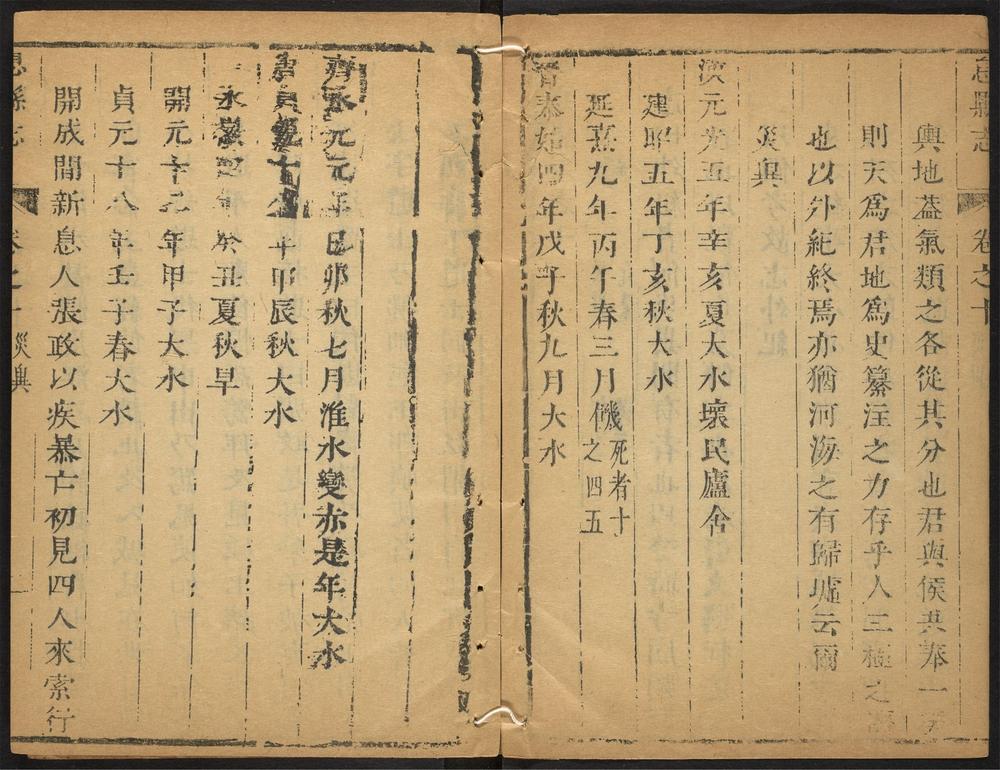 息縣志
卷之十
輿地葢氣類之各從其分也君與侯共奉一天
則天爲君地爲史纂注之力存乎人三極之
也以外紀終焉亦猶河海之有歸墟云爾
災異
漢元光五年辛亥夏大水壞民廬舍
建昭五年丁亥秋大水
延熹九年丙午春三月饑死者十之四五
晉泰始四年戊子秋九月大水
齊永元元年巳卯秋七月淮水變赤是年大水
唐貞觀十八年甲辰秋大水
永徽四年癸丑夏秋旱
開元十二年甲子大水
貞元十八年壬子春大水
開成間新息人張政以疾暴亡初見四人來索行
息縣志
卷之十
災異